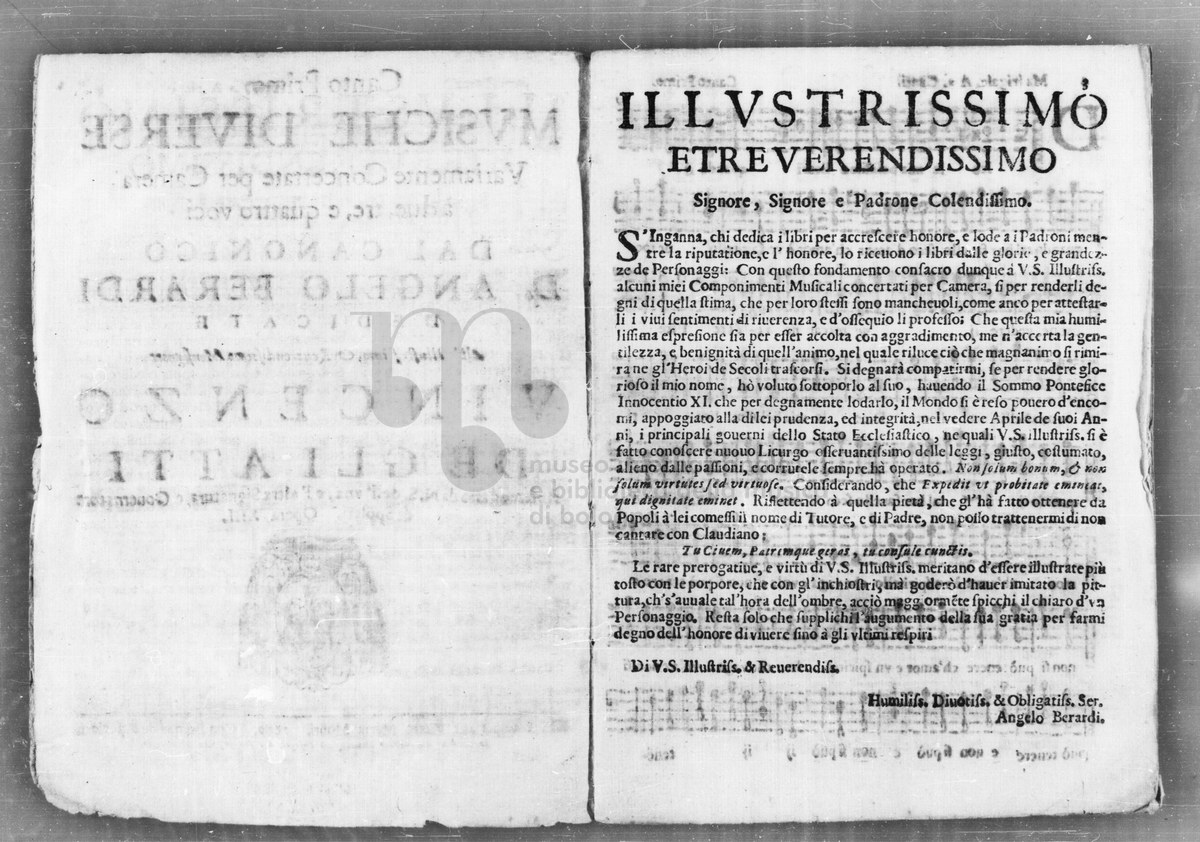 Canto Primo
MVSICHE DIVERSE
Variamente Concertate per Camera
à due, tre, e quattro voci
DAL CANONICO
D. ANGELO BERARDI
DEDICATE
VINCENZO
DEGLI ATTI
museo
e biblio
di bolo
ILLVSTRISSIMO
ET REVERENDISSIMO
Signore, Signore e Padrone Colendissimo.
S'Inganna, chi dedica i libri per accrescere honore, e lode a i Padroni men-
tre la riputatione, e l' honore, lo riceuono i libri dalle glorie, e grandez-
ze de Personaggi: Con questo fondamento consacro dunque à V.S. Illustriss.
alcuni miei Componimenti Musicali concertati per Camera, sì per renderli de-
gni di quella stima, che per loro stessi sono mancheuoli, come anco per attestar-
li i viui sentimenti di riuerenza, e d'ossequio li professo: Che questa mia humi-
lissima espressione sia per esser accolta con aggradimento, me n'accerta la gen-
tilezza, e benignità di quell'animo, nel quale riluce ciò che magnanimo si rimi-
ra ne gl'Heroi de Secoli trascorsi. Si degnarà compatirmi, se per rendere glo-
rioso il mio nome, hò voluto sottoporlo al suo, hauendo il Sommo Pontefice
Innocentio XI. che per degnamente lodarlo, il Mondo si è reso pouero d'enco-
mi, appoggiato alla di lei prudenza, ed integrità, nel vedere Aprile de suoi An-
ni, i principali gouerni dello Stato Ecclesiastico, ne quali V.S. illustriss. si è
fatto conoscere nuouo Licurgo osseruantissimo delle leggi, giusto, costumato,
alieno dalle passioni, e corrutele sempre hà operato. Non solum bonum, & non
solum virtutes sed virtuose. Considerando, che Expedit vt probitate emineat,
qui dignitate eminet. Riflettendo à quella pietà, che gl'hà fatto ottenere da
Popoli à lei comessi il nome di Tutore, e di Padre, non posso trattenermi di non
cantare con Claudiano:
Tu Ciuem, Patremque geras, tu consule cunctis.
Le rare prerogatiue, e virtù di V.S. Illustriss. meritano d'essere illustrate più
tosto con le porpore, che con gl' inchiostri, mà goderò d'hauer imitato la pit-
tura, ch's'auuale tal'hora dell'ombre, acciò maggormẽte spicchi il chiaro d'vn
Personaggio. Resta solo che supplichi l'augumento della sua gratia per farmi
degno dell'honore di viuere sino à gli vltimi respiri
Di V.S. Illustriss. & Reuerendiss.
Humiliss. Diuotiss. & Obligatiss. Ser.
Angelo Berardi.